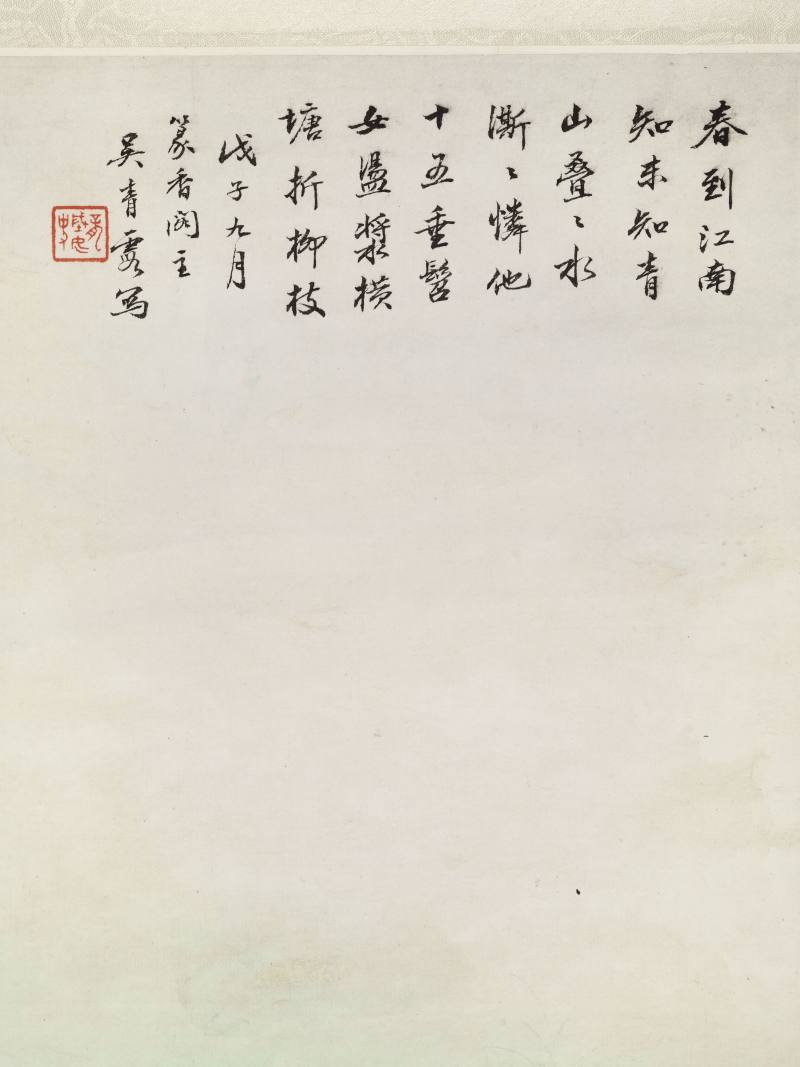 春到江南
知未知青
山叠〻水
澌〻憐他
十五垂髫
女盪槳橫
塘折柳枝
戊子九月
篆香阁主
吴青霞写